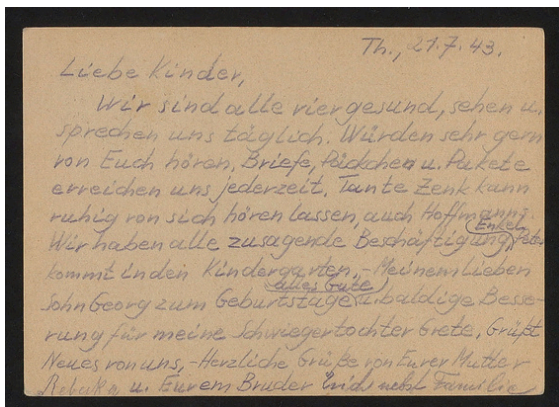 Th., 21.7.43.
Liebe Kinder,
Wir sind alle vier gesund, sehen u.
sprechen uns täglich. Würden sehr gern
von Euch hören. Briefe, Päckchen u. Pakete
erreichen uns jederzeit. Tante Zenk kann
ruhig von sich hören lassen, auch Hoffmanns.
Enkel
Wir haben alle zusagende Beschäftigung, Peter
kommt in den Kindergarten. - Meinem lieben
alles Gute
Sohn Georg zum Geburtstage u. baldige Besse-
rung für meine Schwiegertochter Grete. Grüßt
Neues von uns, - Herzliche Grüße von Eurer Mutter
Rebeka u. Eurem Bruder nebst Familie